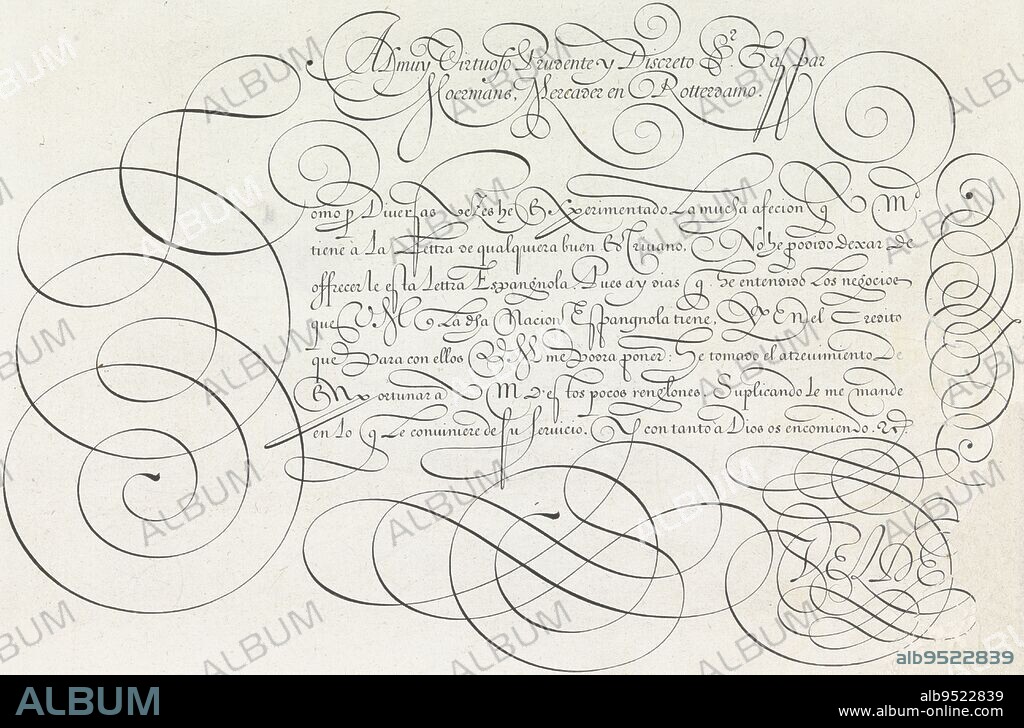 Al muy Virtuoso Prudente y Discreto Sr. Gaspar
Moermans, Mercader en Rotterdamo.
Como pr Diuersas Vezes he Experimentado La mucha afecion q V. Md.
tiene à La Lettra de qualquiera buen Escriuano. No he podido dexar de
offrecer le esta Lettra Espangnola. Pues ay dias q. he entendido Los negocios
que V.M. q La dha Nacion Espangnola tiene, Y En el Credito
que Para con ellos V.M. me podra poner: he tomado el atreuimiento De
Importunar a V.M. d'estos pocos renglones. Suplicando Le me mande
en Lo q Le conuiniere de su seruicio. Y con tanto a Dios os encomiendo. &c.
VELDE
ALBUM
alb9522839
ALBUM
alb9522839
www.album-online.com